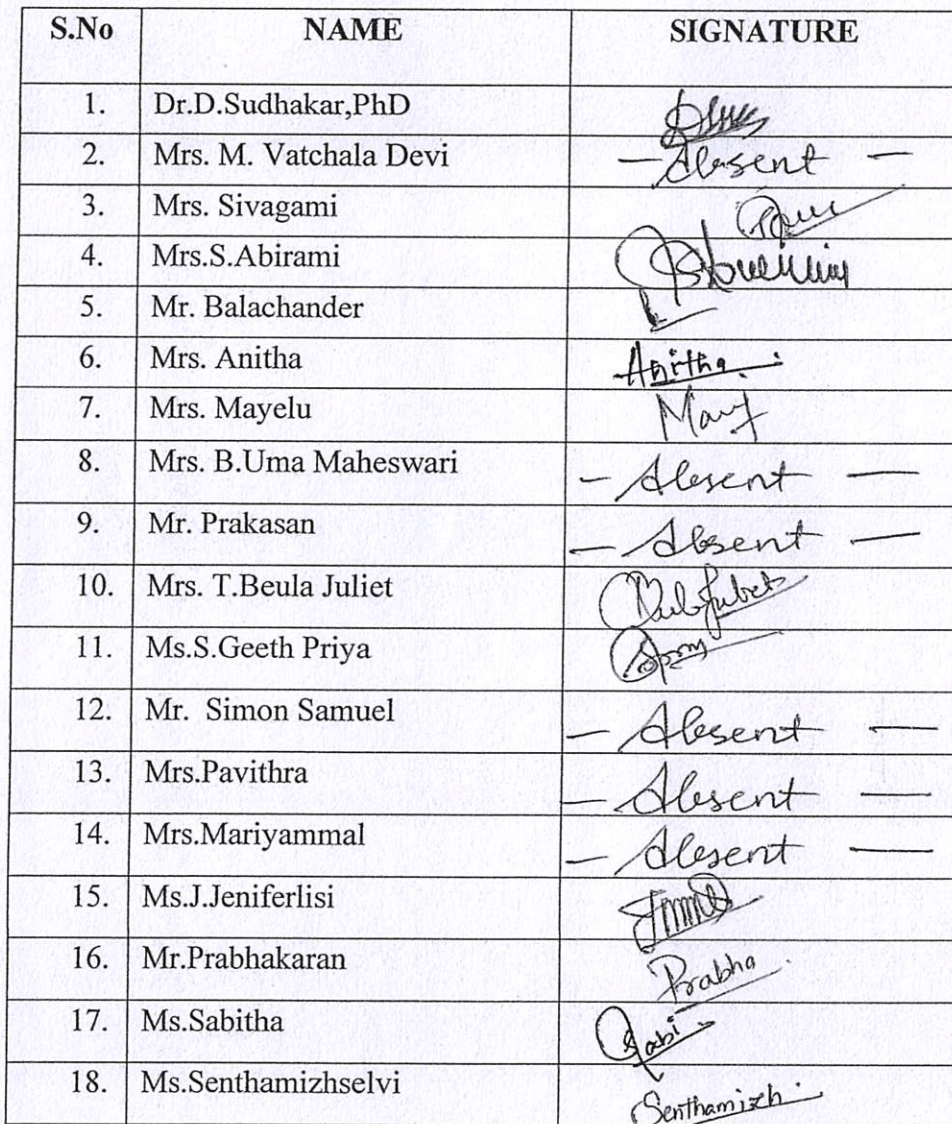 S.No NAME SIGNATURE
1. Dr.D.Sudhakar,PhD
2. Mrs. M. Vatchala Devi — Absent —
3. Mrs. Sivagami
4. Mrs.S.Abirami
5. Mr. Balachander
6. Mrs. Anitha Anitha
7. Mrs. Mayelu
8. Mrs. B.Uma Maheswari — Absent —
9. Mr. Prakasan — Absent —
10. Mrs. T.Beula Juliet
11. Ms.S.Geeth Priya
12. Mr. Simon Samuel — Absent —
13. Mrs.Pavithra — Absent —
14. Mrs.Mariyammal — Absent —
15. Ms.J.Jeniferlisi
16. Mr.Prabhakaran Prabha
17. Ms.Sabitha
18. Ms.Senthamizhselvi Senthamizh